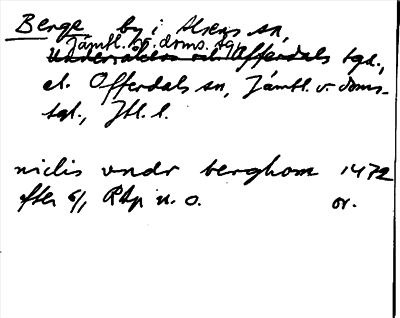 Berge by i Alsens sn,
Jämtl. v. doms. tg.
Undersåkers och Offerdals tgl.,
el. Offerdals sn, Jämtl. v. doms-
tgl., Jtl. l.
niclis vndr berghom 1472
efter 6/1 RAp n. o. or.